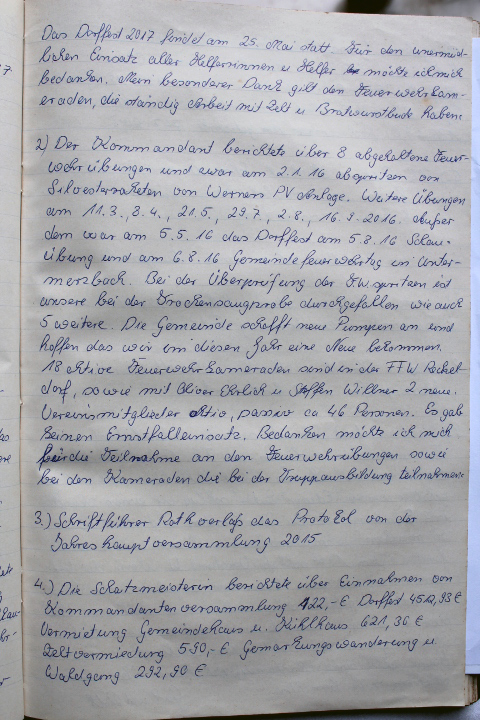 Das Dorffest 2017 findet am 25. Mai statt. Für den unermüd-
lichen Einsatz aller Helferinnen u Helfer möchte ich mich
bedanken. Mein besonderer Dank gilt den Feuerwehrkam-
eraden, die ständig Arbeit mit Zelt u Bratwurstbude haben.
2) Der Kommandant berichtete über 8 abgehaltene Feuer-
wehrübungen und zwar am 2.1.16 abspritzen von
Silvesterraketen von Werners PV Anlage. Weitere Übungen
am 11.3., 8.4., 21.5., 29.7., 2.8., 16.9.2016. Außer
dem war am 5.5.16 das Dorffest am 5.8.16 Schau-
übung und am 6.8.16 Gemeindefeuerwehrtag in Unter-
merzbach. Bei der Überprüfung der FW spritzen ist
unsere bei der Trockensaugprobe durchgefallen wie auch
5 weitere. Die Gemeinde schafft neue Pumpen an und
hoffen das wir in diesen Jahr eine Neue bekommen.
18 aktive Feuerwehrkameraden sind in der FFW Reckel
dorf, sowie mit Oliver Ehrlich u Steffen Willner 2 neue.
Vereinsmitglieder Aktiv, passiv ca 46 Personen. Es gab
keinen Ernstfalleinsatz. Bedanken möchte ich mich
für die Teilnahme an den Feuerwehrübungen sowie
bei den Kameraden die bei der Truppausbildung teilnahmen.
3.) Schriftführer Roth verlaß das Protokol von der
Jahreshauptversammlung 2015
4.) Die Schatzmeisterin berichtete über Einnahmen von
Kommandantenversammlung 122,-€ Dorffest 4512,93 €
Vermietung Gemeindehaus u. Kühlhaus 621,36 €
Zeltvermiedung 590,-€ Gemarkungswanderung u.
Waldgang 292,90 €